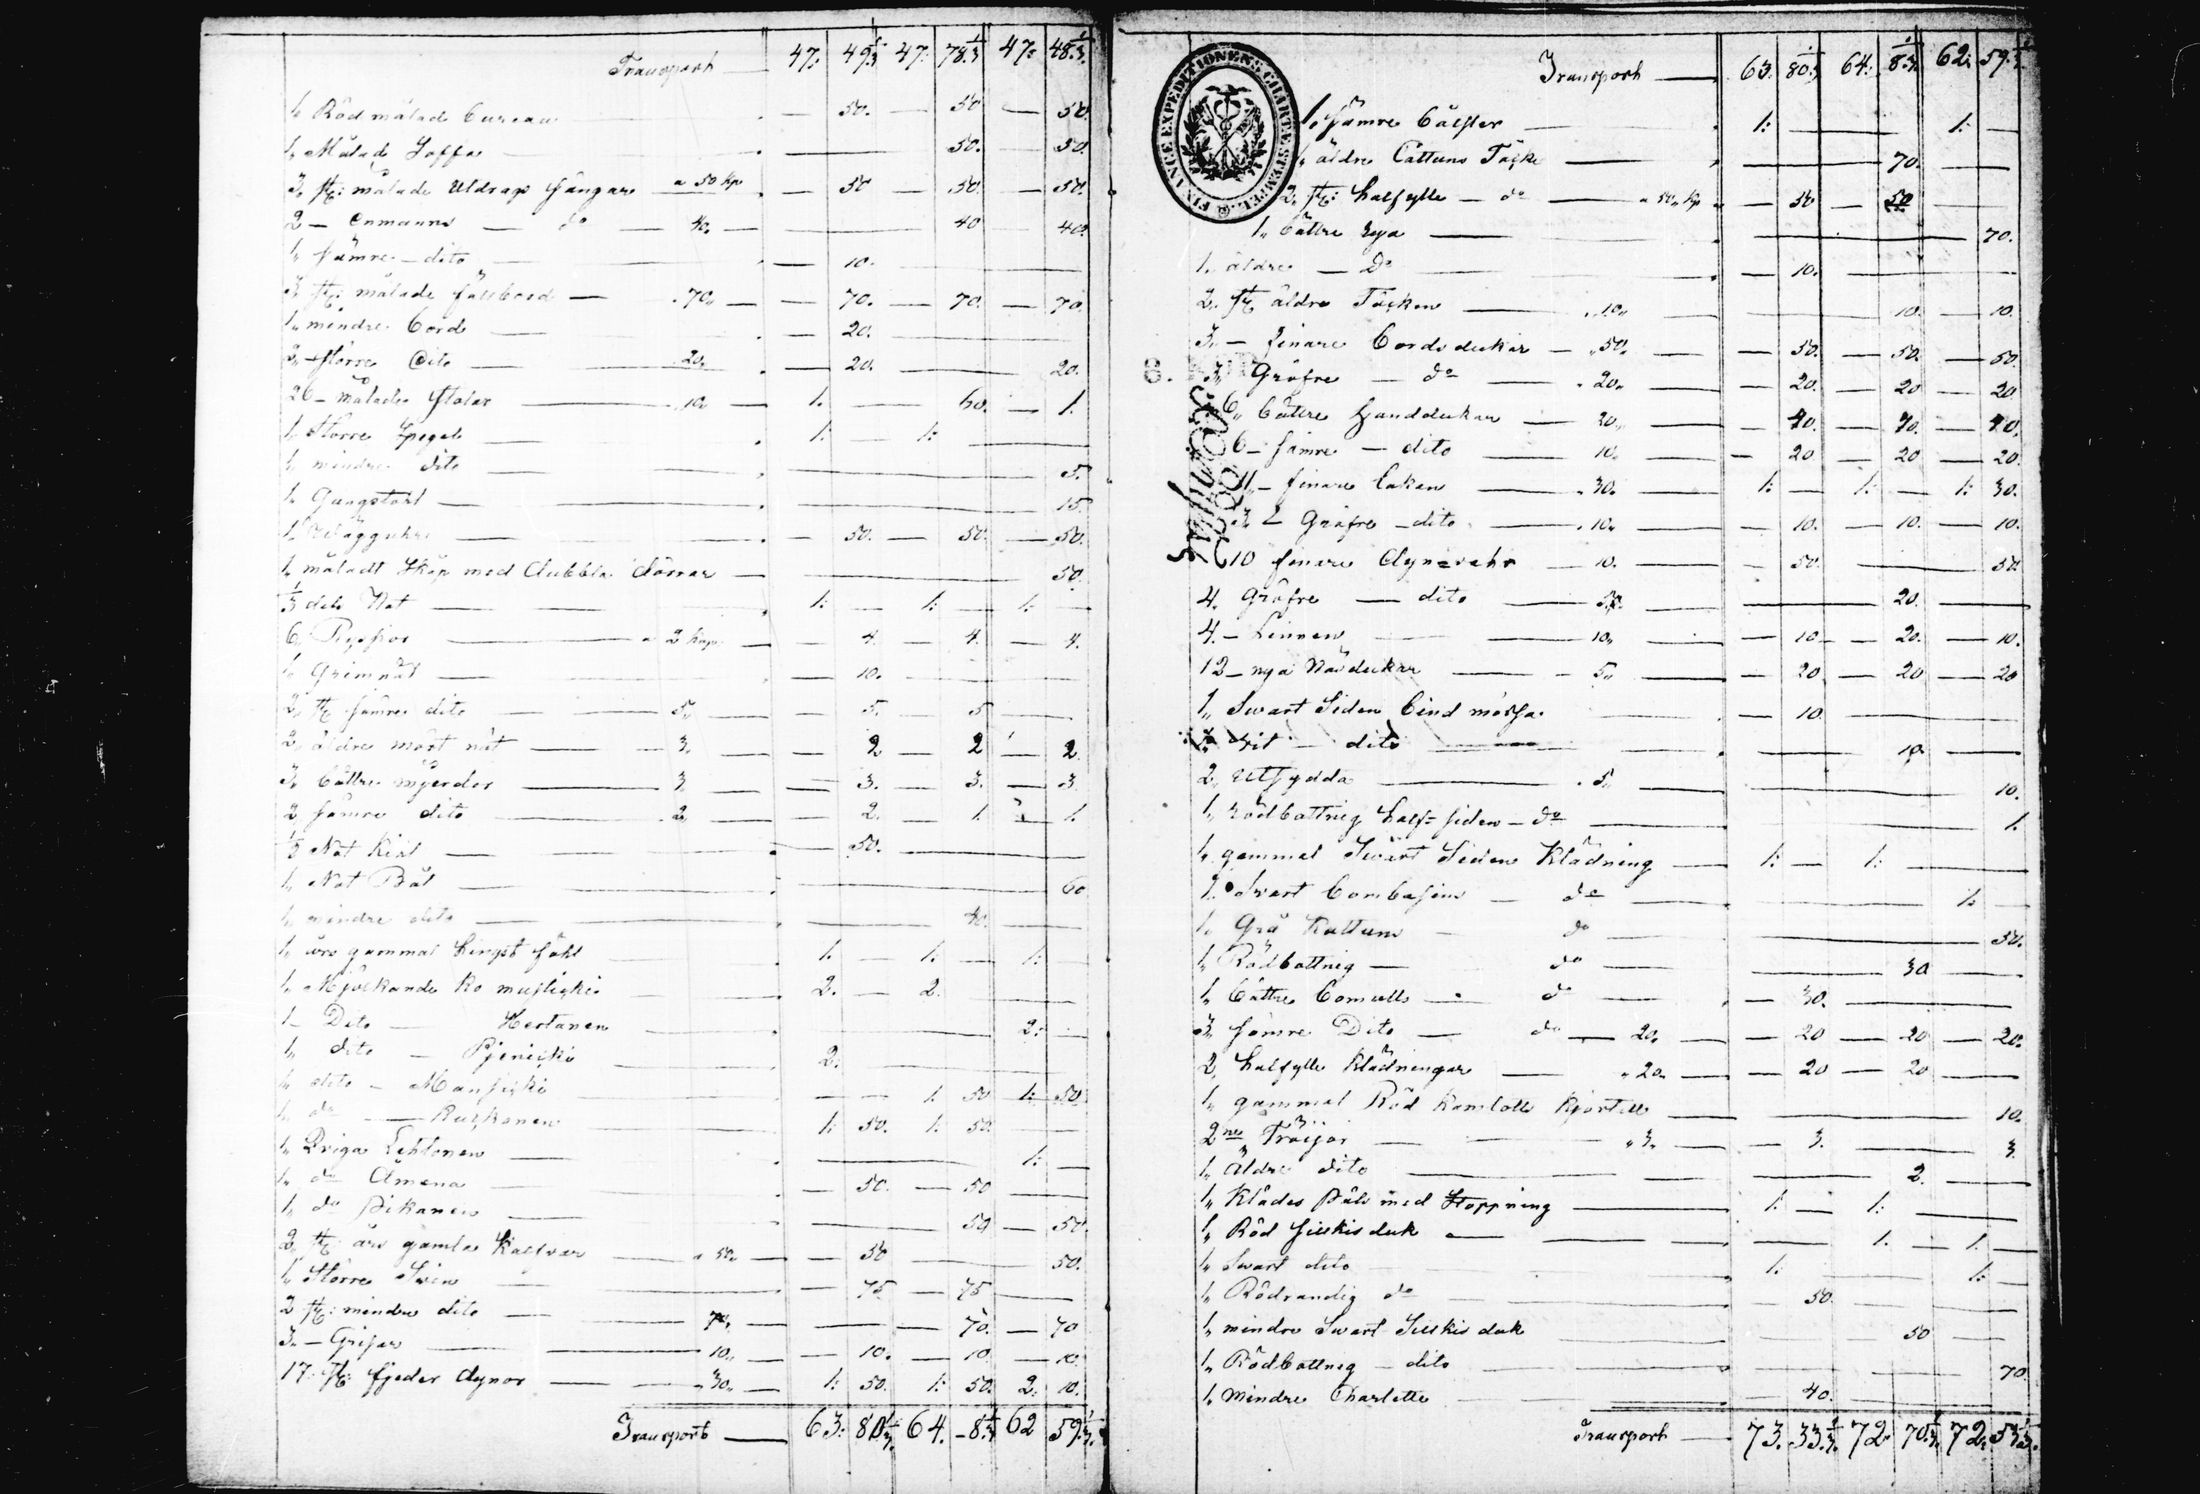 Transport — 47: 49⅓ 47: 78⅓ 47: 48⅓
1, Röd målad bureau — 50. — 50 — 50.
1, Målad Soffa — 50. — 50.
3, st: målade Utdrags sängar — a 50 kp — 50 — 50. — 50.
2 — enmanns — do — 40. — 40 — 40.
1, sämre — dito — 10.
3, st: målade fällbord — 70. — 70. — 70. — 70.
1, mindre bord — 20.
2, större dito — 20. — 20. — 20.
26 — målade stolar — 10. — 1. — 60. — 1.
1, större Spegel — 1: — 1:
1, mindre dito — 5.
1, Gungstol — 15.
1, Wäggukr — 50. — 50. — 50.
1, måladt Skåp med dubbla dörrar — 50.
⅓ dels Not — 1: — 1: — 1:
6, Ryssjor — a 2 kop — 4. — 4. — 4.
1, Grimnät — 10.
2, st sämre dito — 5. — 5. — 5
2, äldre mört nät — 3. — 2 — 2 — 2.
3, bättre mjerdor — 3 — 3. — 3. — 3
2, sämre dito — 2 — 2. — 1. — 1.
½ Not — 50.
1, Not Båt — 60
1, mindre dito — 40.
1, års gammal hingst fåhl — 1: — 1: — 1:
1, Mjölkande Ko Musticki — 2. — 2.
1 — Dito — Hertanen — 2:
1, dito — Pjenicki — 2:
1, dito — Mansicki — 1. 50 1: 50
1, do — Ruskonen — 1: 50. 1: 50.
1, Qviga Lehtonen — 1:
1, do Ämena — 50. — 50
1, do Pikanen — 50 — 50.
2, st: års gamla Kalfvar — a 50. — 50 — 50.
1, Större Swin — 75 — 75
2 st: mindre dito — 70. — 70. — 70
3, — Grisar — 10. — 10. — 10 — 10.
17. st: fjeder dynor — 30. — 1: 50. 1: 50. 2: 10.
Transport — 63: 80⅓ 64. 8⅓ 62 59⅓
FINANCE EXPEDITIONENS CHARTÆ STEMPEL
Transport — 63: 80⅓ 64: 8⅓ 62: 59⅓
1, sämre bålster — 1: — 1:
1, äldre Cattuns Täcke — 70.
2, st: halfylle — do — a 50, kp — 50 — 50
1, bättre rya — 70.
1, äldre — do — 10.
2, st äldre Täcken — 10. — 10. — 10.
3, — finare bordsdukar — 50. — 50. — 50. — 50
3, Gröfre — do — 20. — 20. — 20 — 20
6, bättre handdukar — 20. — 40. — 40. — 40.
6 — sämre — dito — 10. — 20 — 20 — 20.
11 — finare lakan — 30. — 1: — 1: — 1: 30.
3, — Gröfre — dito — 10. — 10. — 10. — 10.
10 finare dynevahr — 10. — 50. — 50.
4. Gröfre — dito — 5. — 20.
4. — Linnen — 10. — 10 — 20. — 10.
12 — nya Näsdukar — 5. — 20 — 20 — 20
1, Svart Siden bindmössa — 10.
1, Vit — dito — 10.
2, utsydda — 5. — 10.
1, rödbottnig half siden — do — 1.
1, gammal Swart Siden Klädning — 1: — 1:
1, Svart bombasins — do — 1:
1, Grå Kattuns — do — 50.
1, Rödbottnig — do — 30
1, bättre bomulls — do — 30.
3, sämre Dito — do — 20. — 20 — 20 — 20.
2, halfylle Klädningar — 20. — 20 — 20
1, gammal Röd Kamlotts Kjortell — 10.
2ne Tröijor — 3. — 3. — 3
1, Äldre dito — 2.
1, Klädes päls med Stoppning — 1: — 1:
1, Röd silkisduk — 1. — 1.
1, Swart dito — 1: — 1:
1, Rödrandig do — 50.
1, mindre Swart Silkis duk — 50
1, Rödbottnig — dito — 70.
1, mindre Charlette — 40.
Transport — 73. 33⅓ 72. 70⅓ 72. 53⅓